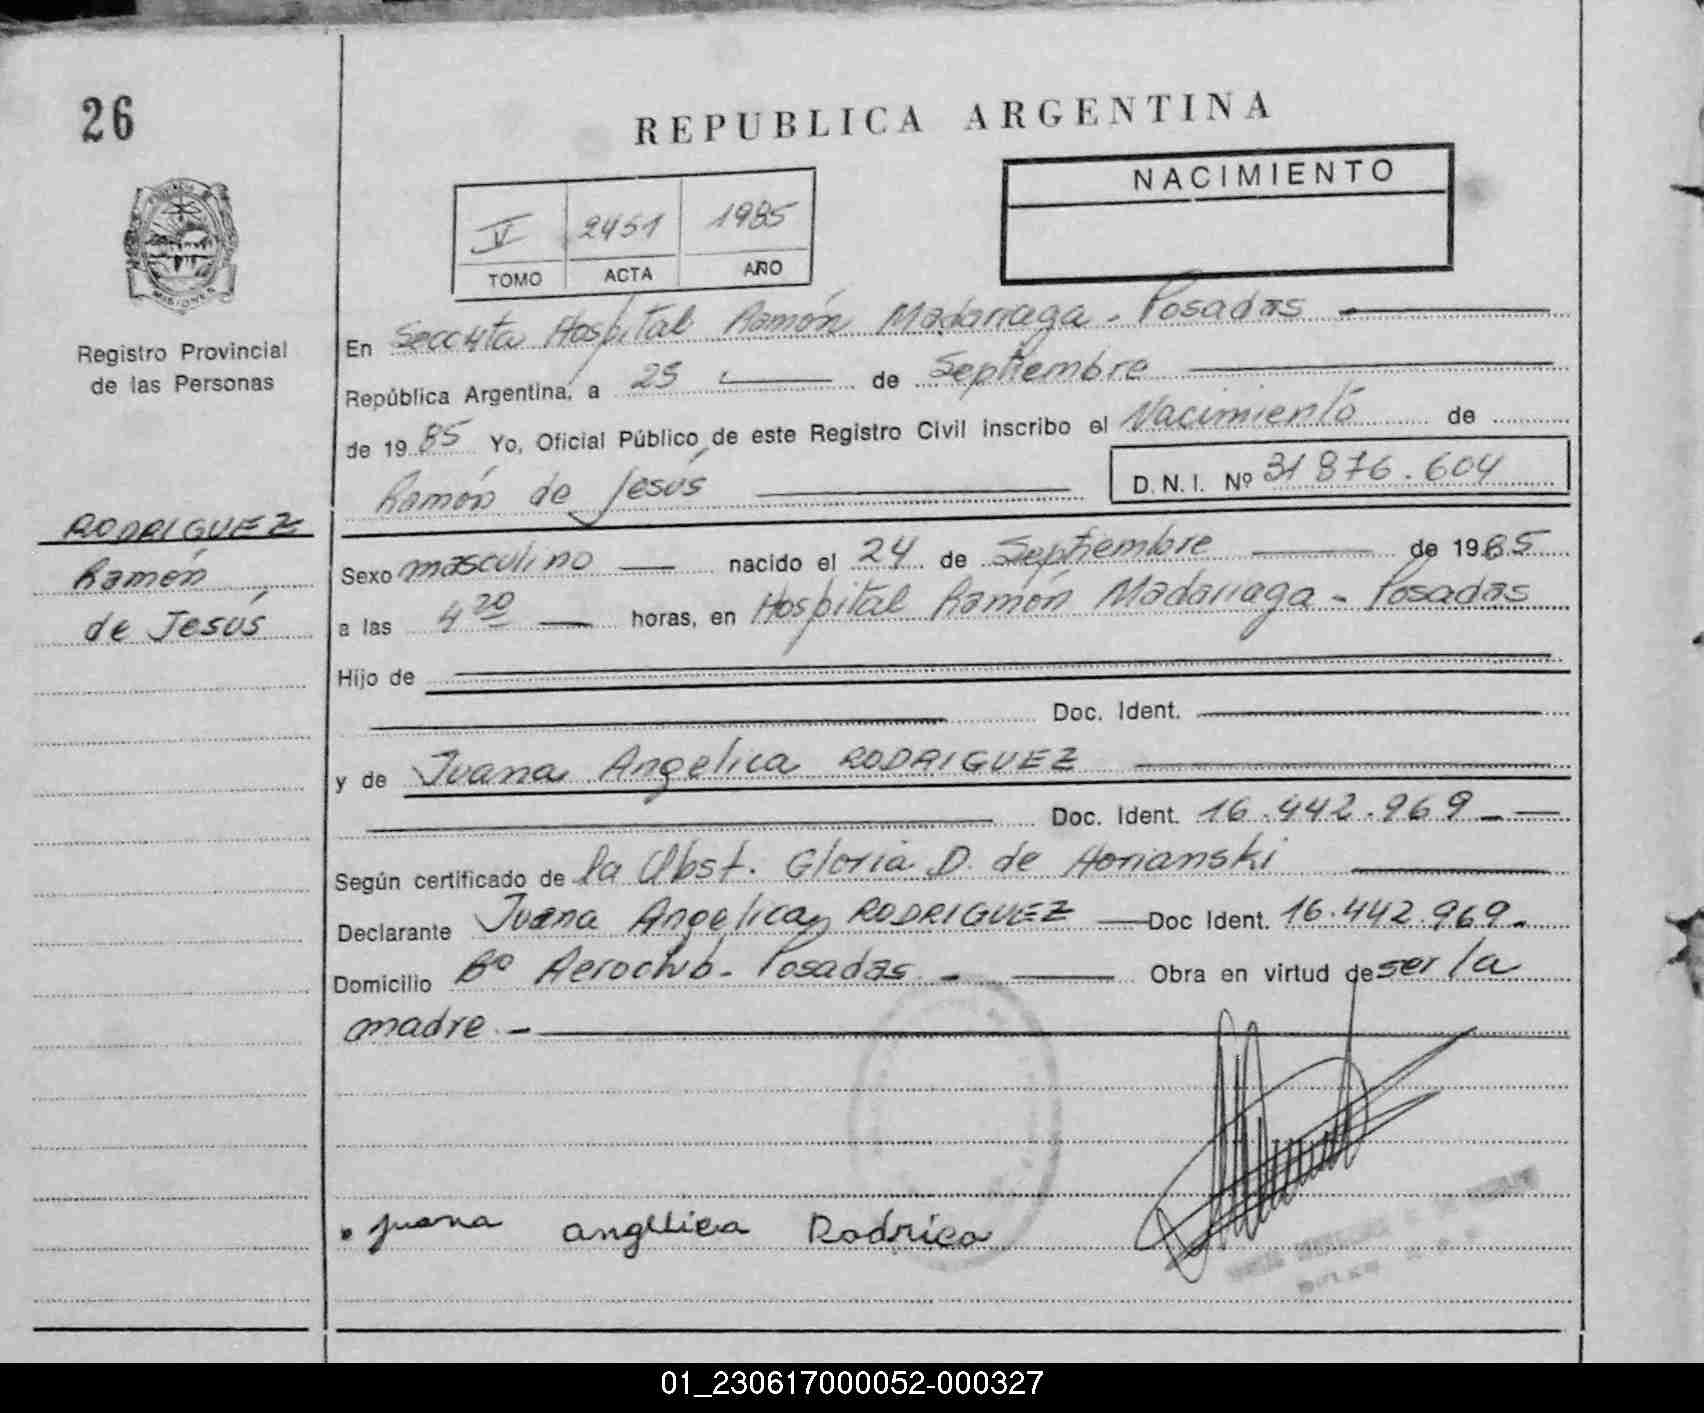 26
REPUBLICA ARGENTINA
NACIMIENTO
V 2451 1985
TOMO ACTA AÑO
MISIONES
Registro Provincial
de las Personas
RODRIGUEZ
Ramón
de Jesús
En Secc 4ta Hospital Ramón Madariaga - Posadas
República Argentina, a 25 de Septiembre
de 1985 Yo, Oficial Público de este Registro Civil inscribo el Nacimiento de
Ramón de Jesús D.N.I. Nº 31 876.604
Sexo masculino nacido el 24 de Septiembre de 1985
a las 4 20 horas, en Hospital Ramón Madariaga - Posadas
Hijo de
Doc. Ident.
y de Juana Angelica RODRIGUEZ
Doc. Ident. 16.442.969
Según certificado de la Obst. Gloria D. de
Declarante Juana Angelica RODRIGUEZ Doc Ident. 16.442.969.
Domicilio Bº Aeroclub - Posadas - Obra en virtud de ser la
madre.-
juana angelica Rodrico
01_230617000052-000327